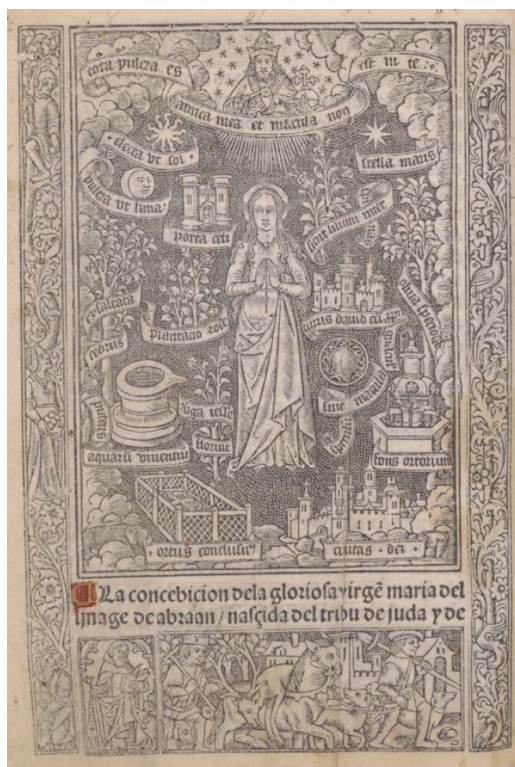 tota pulcra es
est in te
amica mea et macula non
electa vt sol
stella maris
pulcra vt luna
porta celi
sicut lilium inter
exaltata
cedrus
plantacio rose
turris david cū
oliva speciosa
sine macula
puteus
aquarū viventiū
v̄ga iesse
floruit
fons ortorum
ortus conclusus
civitas dei
La concebicion dela gloriosa virgē maria del
linage de abraan / nasçida del tribu de juda y de